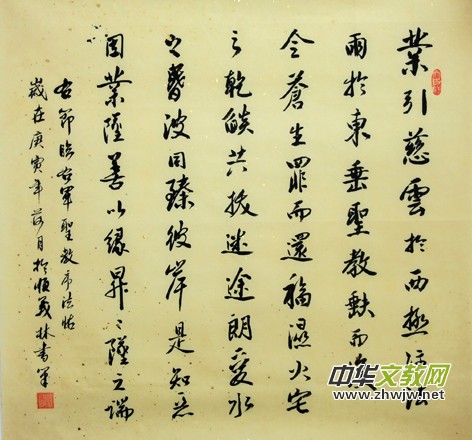 業引慈雲於西極注法
雨於東垂聖教缺而復
全蒼生罪而還福濕火宅
之乾燄共拔迷途朗愛水
之昏波同臻彼岸是知惡
因業墜善以緣昇〻墜之端
右節臨右軍聖教序法帖
歲在庚寅年月於順義林書軍
中华文教网
www.zhwjw.net